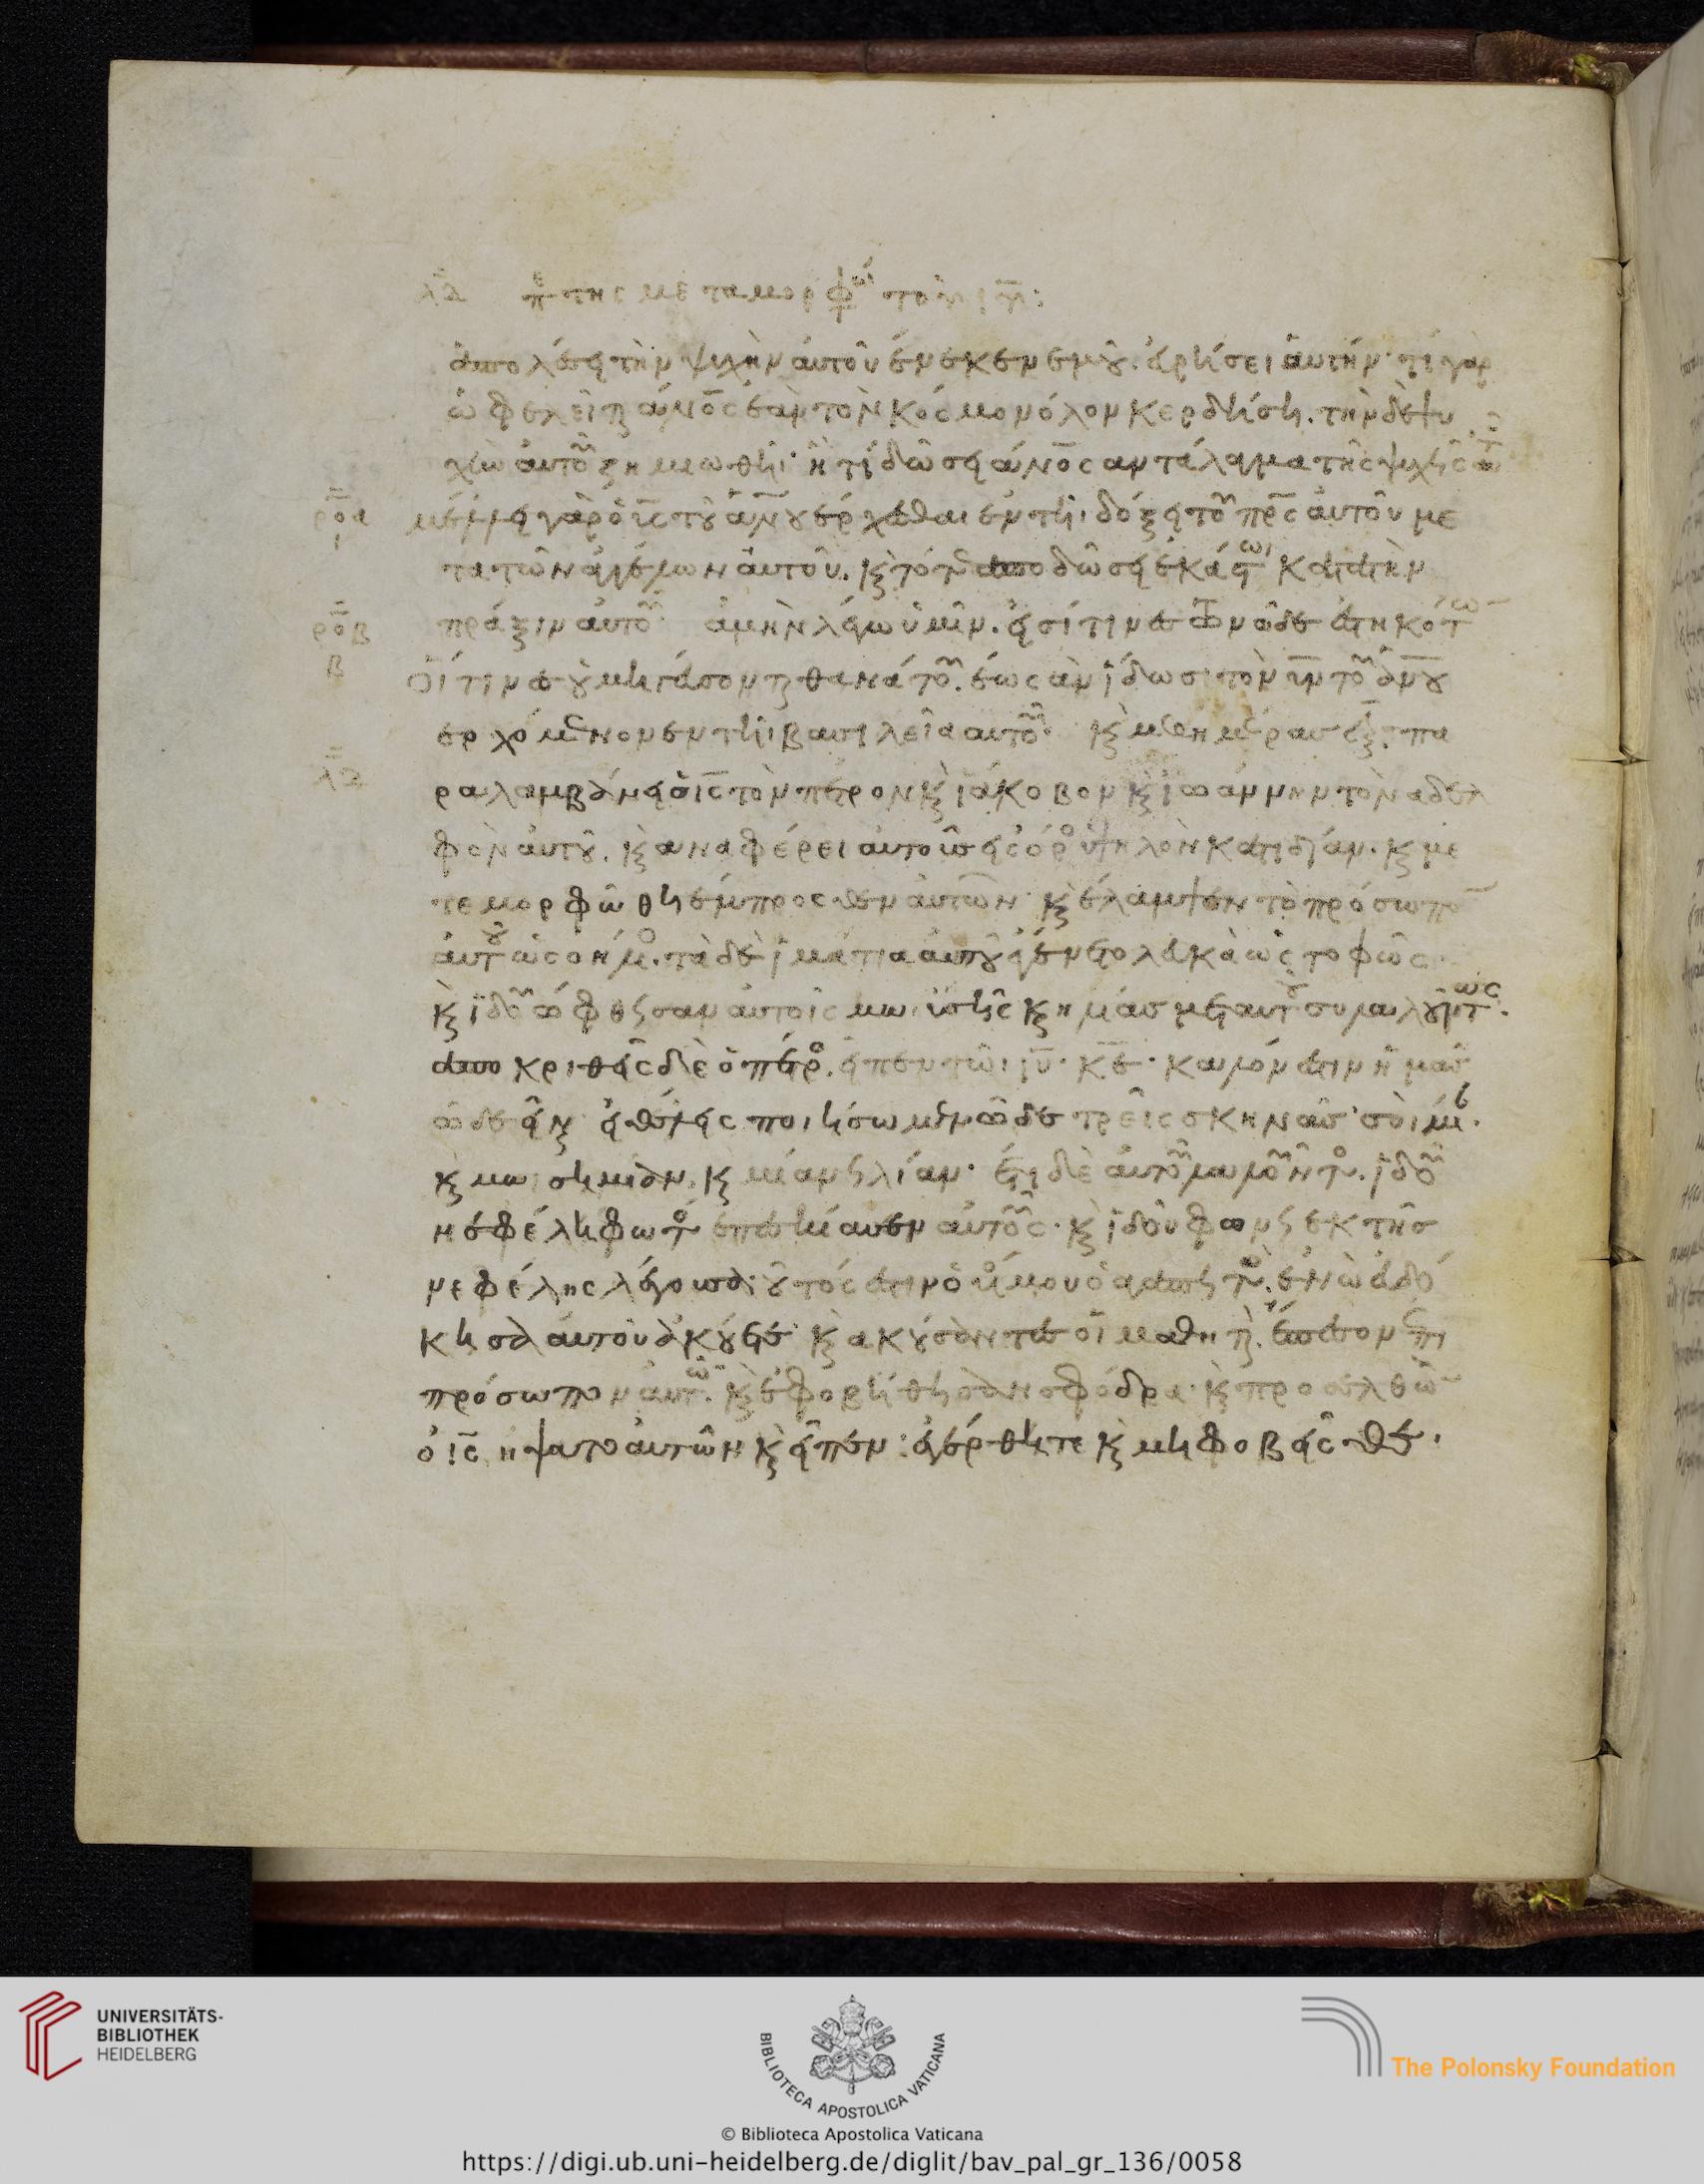 λδ περὶ της μεταμορφώ τοῦ ιυ:
ἀπολέσει τὴν ψυχὴν αὐτοῦ ἕνεκεν ἐμοῦ. εὑρήσει αὐτήν· τί γὰρ
ὠφελεῖται ἄνος ἐὰν τὸν κόσμον ὅλον κερδήση. τὴν δὲ ψυ
χὴν αὐτοῦ ζημιωθῆι· ἢ τί δώσει ἄνος ἀντάλαγμα τῆς ψυχῆς αὐτοῦ
ροα
ι
μέλλει γὰρ ὁ υς τοῦ ανου ἔρχεσθαι ἐν τῆι δόξει τοῦ πρς αὐτοῦ με
τὰ τῶν ἀγγέλων αὐτοῦ. κ τότε ἀποδώσει ἑκάστωι κατὰ τὴν
ροβ
β
πράξιν αὐτοῦ ἀμὴν λέγω ὑμῖν. εἰσί τινες τῶν ὧδε ἑστηκότων
Οἵτινες οὐ μὴ γεύσονται θανάτου. ἕως ἂν ἴδωσι τὸν υν τοῦ ανου
ἐρχόμενον ἐν τῆι βασιλεία αὐτοῦ· κ μεθ ημέρας ἕξ. πα
λδ
ραλαμβάνει ὁ ις τὸν πέτρον κ ϊάκοβον κ ϊωάννην τὸν αδελ
φὸν αὐτοῦ. κ αναφέρει αὐτοὺς εἰς ὄρος ὑψηλὸν κατιδίαν. κ με
τεμορφώθη ἔμπροσθεν αὐτῶν· κ ἔλαμψεν τὸ πρόσωπον
αὐτοῦ ὡς ὁ ἥλιος. τὰ δὲ ϊμάτια αὐτοῦ ἐγένετο λευκὰ ὡς το φῶς
κ ϊδοὺ ὤφθησαν αὐτοῖς μωϋσῆς κ ηλίας μετ αὐτοῦ συλλαλοῦντες.
ἀποκριθεὶς δὲ ὁ πέτρος. εἶπεν τῶι ιυ· κε· καλόν ἐστιν ἡμᾶς
ὧδε εἶναι εἰ θέλεις ποιήσωμεν ὧδε τρεῖς σκηνάς· σοὶ μίαν.
κ μωσῆ μίαν. κ μίαν ηλίαν· ἔτι δὲ αὐτοῦ λαλοῦντος. ϊδοὺ
νεφέλη φωτὸς ἐπεσκίασεν αὐτούς. κ ϊδοὺ φωνὴ ἐκ τῆς
νεφέλης λέγουσα· οὗτός ἐστιν ὁ υς μου ὁ ἀγαπητός. ἐν ὧ εὐδό
κησα αὐτοῦ ἀκούετε· κ ακούσαντες οἱ μαθηταὶ. ἔπεσον ἐπὶ
πρόσωπον αὐτῶν. κ ἐφοβήθησαν σφόδρα· κ προσελθὼν
ὁ ις ηψατο αυτῶν κ εἶπεν: ἐγέρθητε κ μὴ φοβεῖσθε.
UNIVERSITÄTS-
BIBLIOTHEK
HEIDELBERG
BIBLIOTECA APOSTOLICA VATICANA
The Polonsky Foundation
© Biblioteca Apostolica Vaticana
https://digi.ub.uni-heidelberg.de/diglit/bav_pal_gr_136/0058